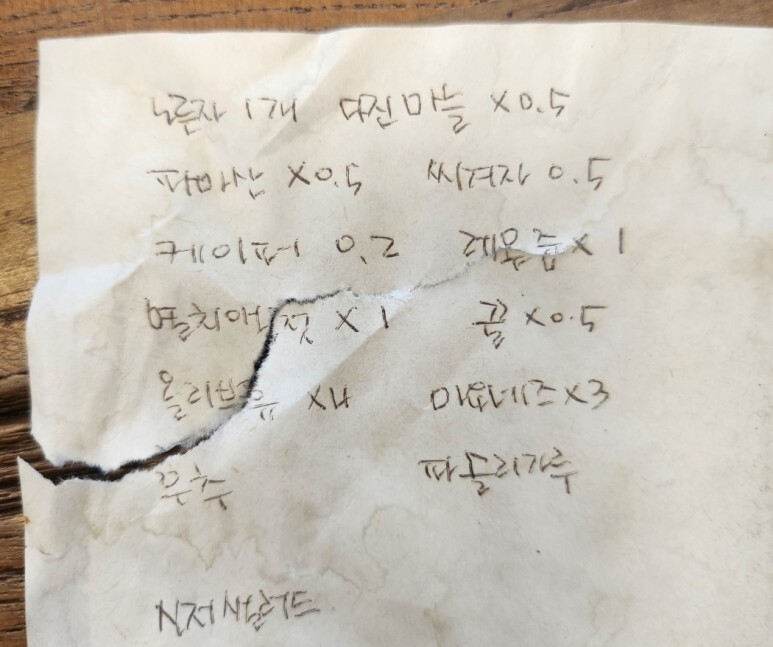 노른자 1개 다진마늘 x0.5
파마산 x0.5 씨겨자 0.5
케이퍼 0.2 레몬즙 x 1
멸치액젓 x 1 꿀 x0.5
올리브유 x4 마요네즈x3
후추 파슬리가루
시저샐러드